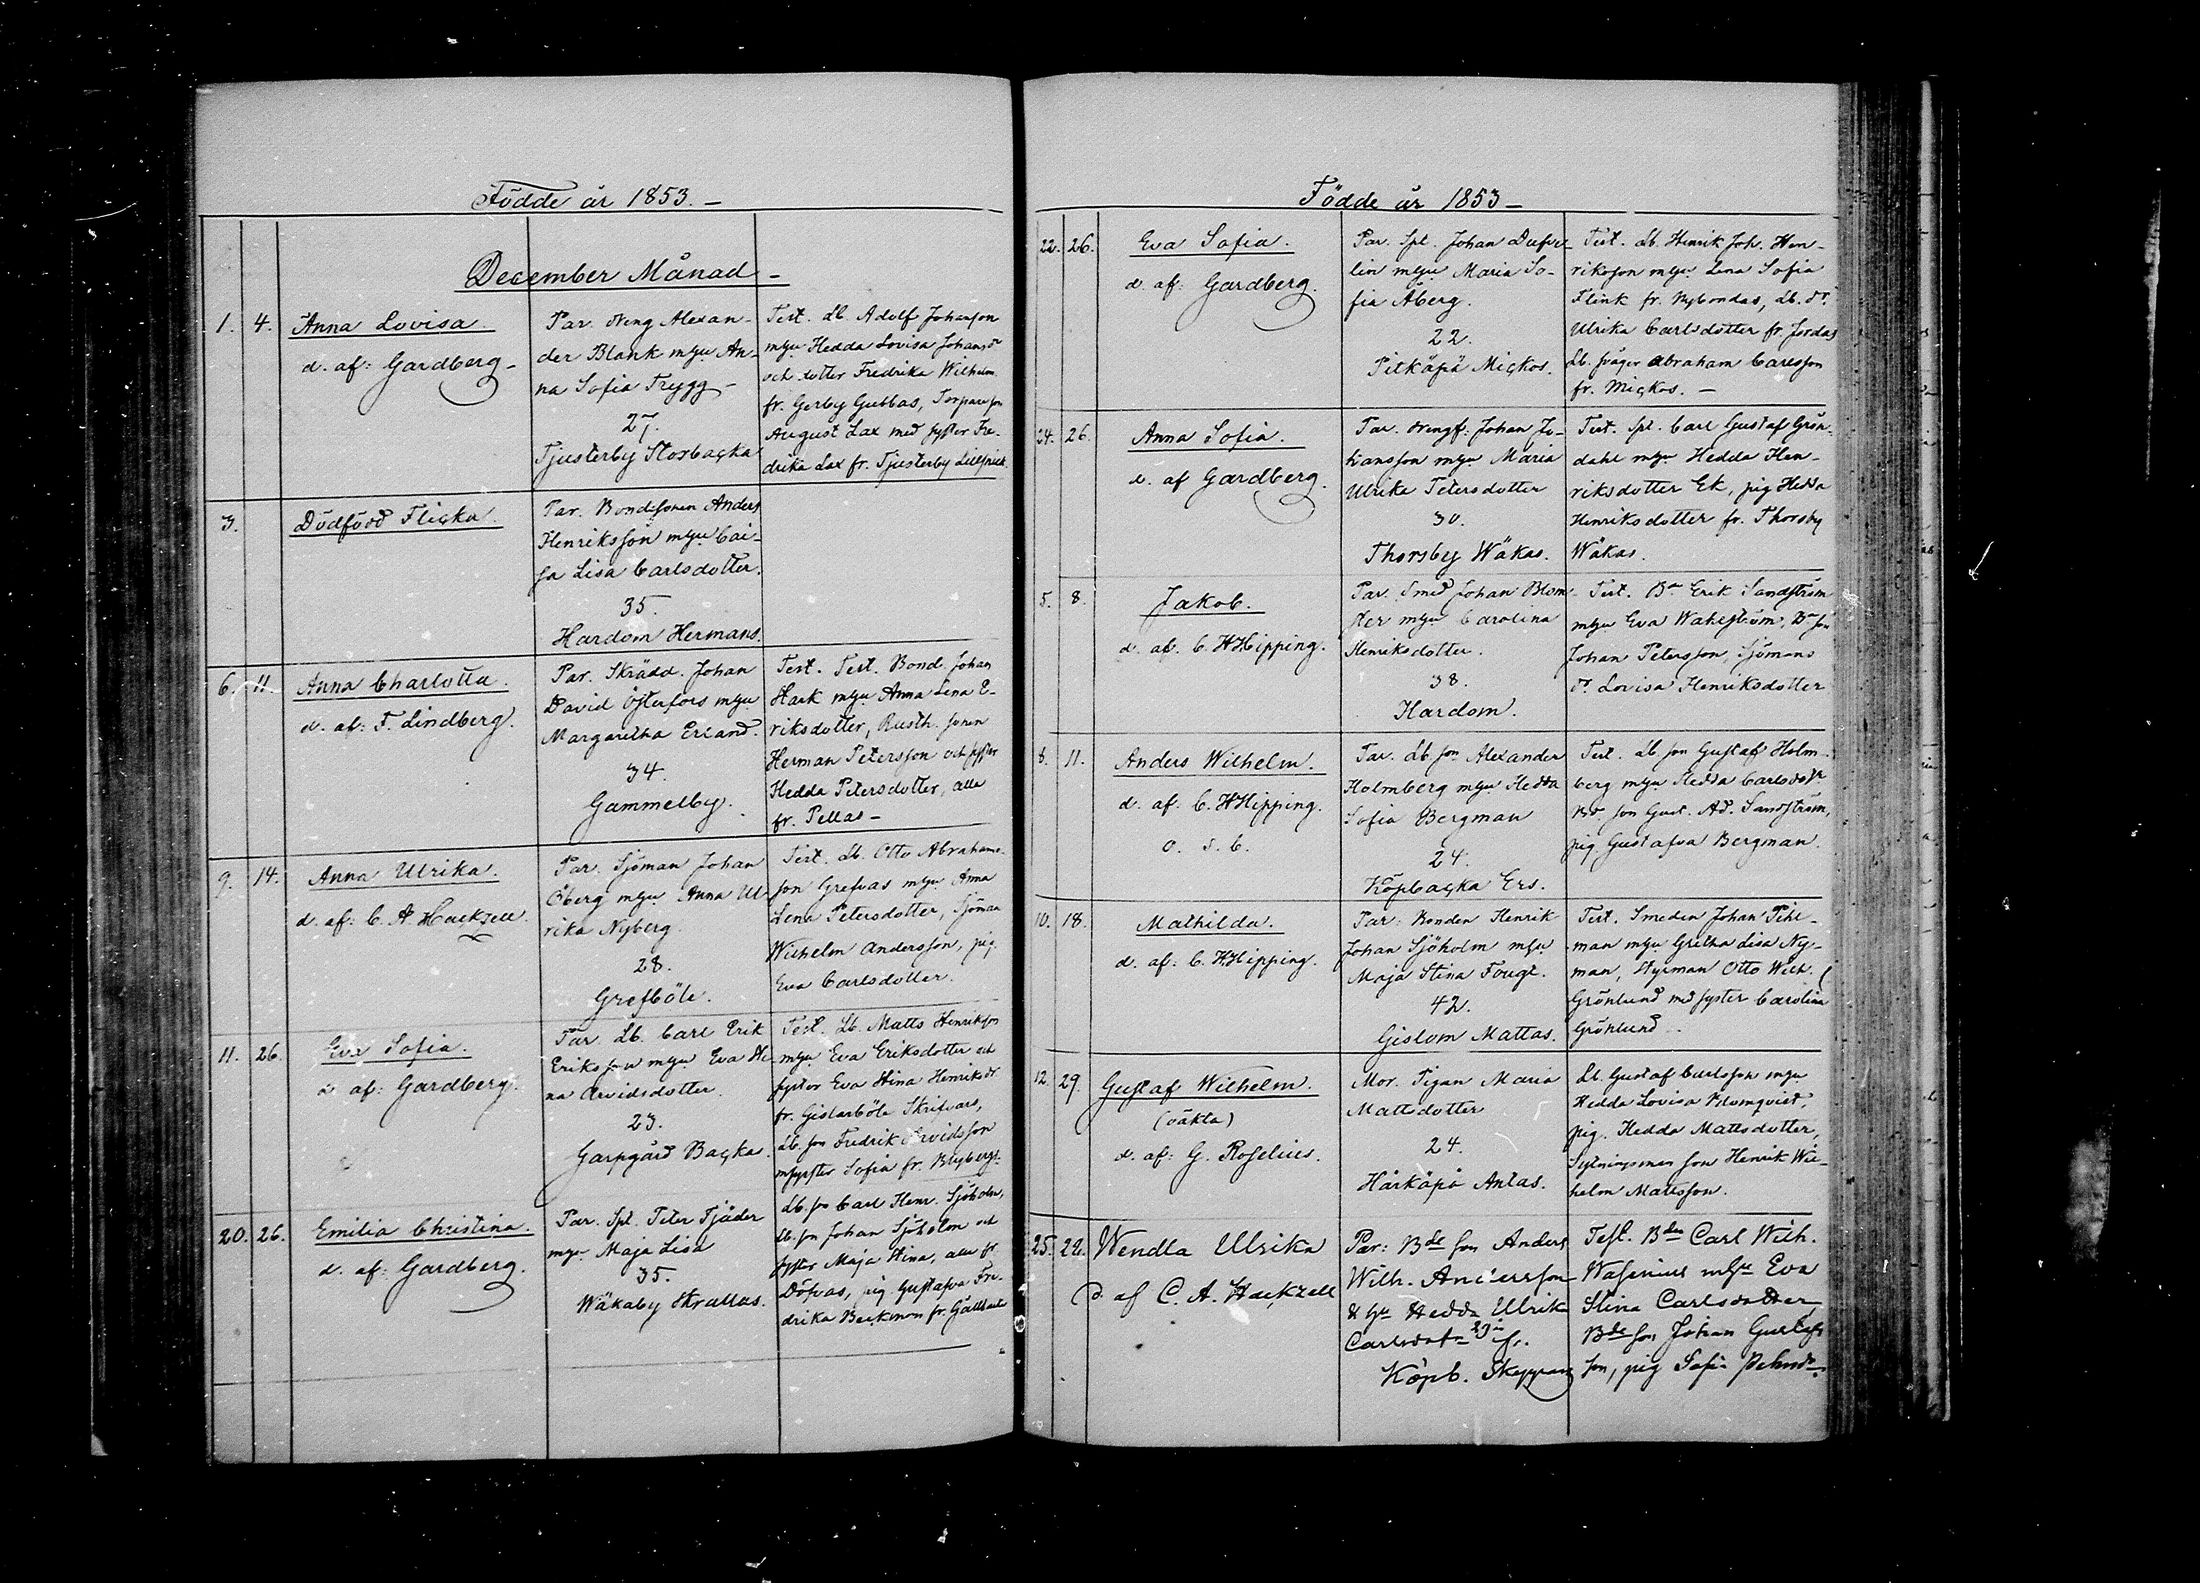 Födde år 1853. –
December Månad –
1. 4. Anna Lovisa
d. af: Gardberg –
Par. Dreng Alexan-
der Blank mhu An-
na Sofia Trygg –
27.
Tjusterby Storbacka
Test. Lb. Adolf Johansson
mhu Hedda Lovisa Johansdr
och dotter Fredrika Wilhelm.
fr. Gerby Gubbas, Torpareson
August Lax med syster Fre-
drika Lax fr. Tjusterby
3. Dödfödd Flicka.
Par. Bondesonen Anders
Henriksson mhu Cai-
sa Lisa Carlsdotter.
35.
Hardom Hermans.
6. 11 Anna Charlotta.
d. af: F. Lindberg.
Par. Skrädd. Johan
David Österfors mhu
Margaretha Erland.
34.
Gammelby.
Test. Test. Bond. Johan
Hark mhu Anna Lena E-
riksdotter, Rusth. sonen
Herman Petersson och syster
Hedda Petersdotter, alla
fr. Pellas –
9. 14. Anna Ulrika.
d. af: C. A. Hackzell
Par. Sjöman Johan
Öberg mhu Anna Ul-
rika Nyberg.
28.
Grefböle.
Test. Lb. Otto Abrahams-
son Grefvas mhu Anna
Lena Petersdotter, Sjöman
Wilhelm Andersson, pig.
Eva Carlsdotter.
11. 26. Eva Sofia.
d. af: Gardberg.
Par. Lb. Carl Erik
Eriksson mhu Eva He-
na Arvidsdotter.
23.
Garpgård Backas.
Test. Lb. Matts Henriksson
mhu Eva Eriksdotter och
syster Eva Stina Henriksdr
fr. Gislarböle Skrifvars,
Lb. son Fredrik Arvidsson
m syster Sofia fr.
20. 26. Emilia Christina.
d. af: Gardberg.
Par. Spl. Peter Tjäder
mhu Maja Lisa
35.
Wäkaby Skrallas.
Lb. son Carl Henr. Sjöholm,
Lb. son Johan Sjöholm och
syster Maja Stina, alla fr.
Döfvas, pig Gustafva Fre-
drika Beckman fr.
Födde år 1853 –
22. 26. Eva Sofia.
d. af: Gardberg.
Par. Spl. Johan Dufve-
lin mhu Maria So-
fia Åberg.
22.
Pitkäpä Mickos.
Test. Lb. Henrik Joh. Hen-
riksson mhu Lena Sofia
Flink fr. Nybondas, Lb. dr.
Ulrika Carlsdotter fr Jordas
Lb. svåger Abraham Carlsson
fr. Mickos. –
24. 26. Anna Sofia.
d. af Gardberg.
Par. Drengf: Johan Jo-
hansson mhu Maria
Ulrika Petersdotter
30.
Thorsby Wäkas.
Test. Spl. Carl Gustaf Grön-
dahl mhu Hedda Hen-
riksdotter Ek, pig Hedda
Henriksdotter fr. Thorsby
Wäkas.
5. 8. Jakob.
d. af: C. H Hipping.
Par. Smed Johan Blom-
ster mhu Carolina
Henriksdotter.
38.
Hardom.
Test. Bn Erik Sandström
mhu Eva Wahlström, Bn son
Johan Petersson, Sjömans
dr. Lovisa Henriksdotter
8. 11. Anders Wilhelm.
d. af: C. H Hipping.
o. s. b.
Par. Lb. son Alexander
Holmberg mhu Hedda
Sofia Bergman
24.
Köpbacka Ers.
Test. Lb. son Gustaf Holm-
berg mhu Hedda Carlsdotr
Bd. son Gust. Ad. Sandström,
pig Gustafva Bergman.
10. 18. Mathilda.
d. af: C. H Hipping.
Par: Bonden Henrik
Johan Sjöholm mhu
Maja Stina Fougt.
42.
Gislom Mattas.
Test. Smeden Johan Pihl-
man mhu Gretha Lisa Ny-
man, Styrman Otto Wilh.
Grönlund med syster Carolina
Grönlund –
12. 29. Gustaf Wilhelm.
(oäkta)
d. af: G. Roselius.
Mor. Pigan Maria
Mattsdotter
24.
Härkäpä Antas.
Lb. Gustaf Carlsson mhu
Hedda Lovisa Blomqvist,
pig. Hedda Mattsdotter,
Sytningsman son Henrik Wil-
helm Mattsson.
25. 29. Wendla Ulrika
d. af C. A. Hackzell
Par: Bde son Anders
Wilh. Andersson
& hu Hedda Ulrik
Carlsdotr
Köpb. Skeppars
Test. Bden Carl Wilh.
Wasenius mhu Eva
Stina Carlsdotter,
Bde son Johan Gustafs
son, pig Sofia